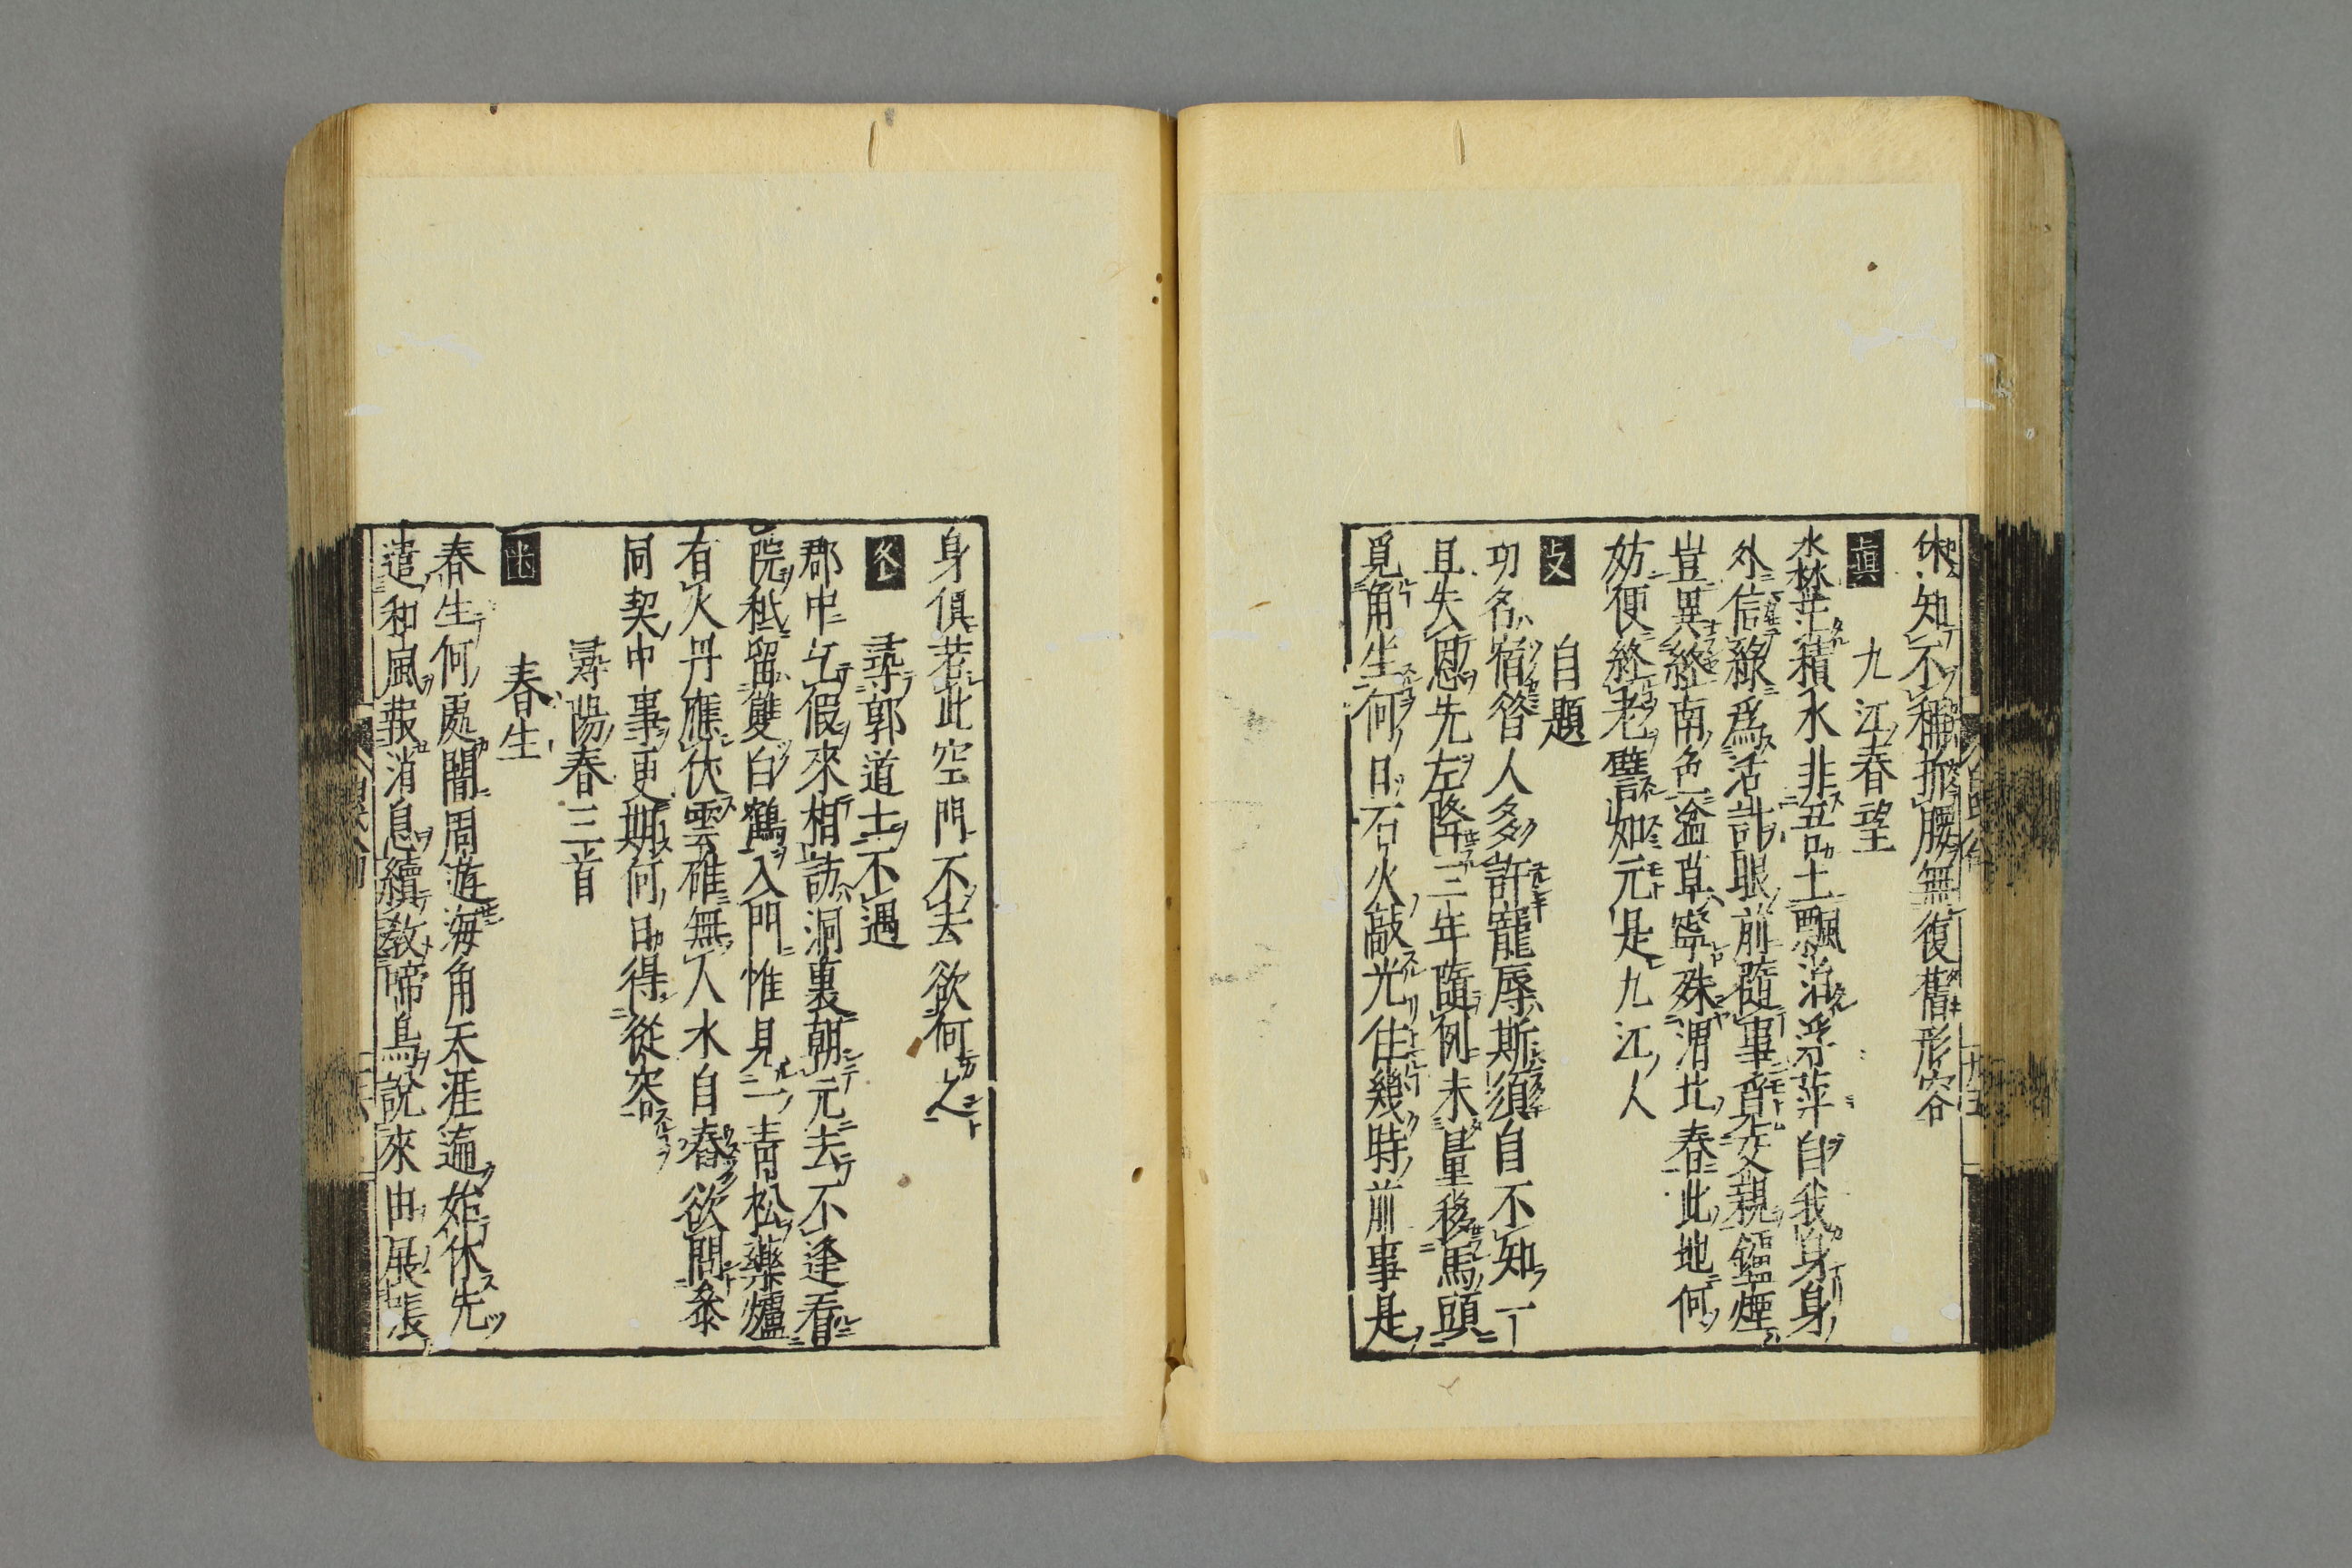 休知不稱抓腰無復舊形容
眞
九江春望
水茫積水非吾土飄泊浮萍自我身身
外信緣爲活計眼前隨事覓交親鑪煙
豈異終南色湓草寧殊渭北春此地何
妨便終老譬如元是九江人
支
自題
功名宿昔人多許寵辱斯須自不知一
旦失恩先左降三年隨例未量移馬頭
覓角生何日石火敲光住幾時前事是
身俱若此空門不去欲何之
冬
尋郭道士不遇
郡中乞假來相訪洞裏朝元去不逢看
院秖留雙白鶴入門惟見一青松藥爐
有火丹應伏雲碓無人水自舂欲問參
同契中事更期何日得從容
尋陽春三首
春生
春生何處闇周遊海角天涯遍始休先
遣和風報消息續教啼鳥說來由展張